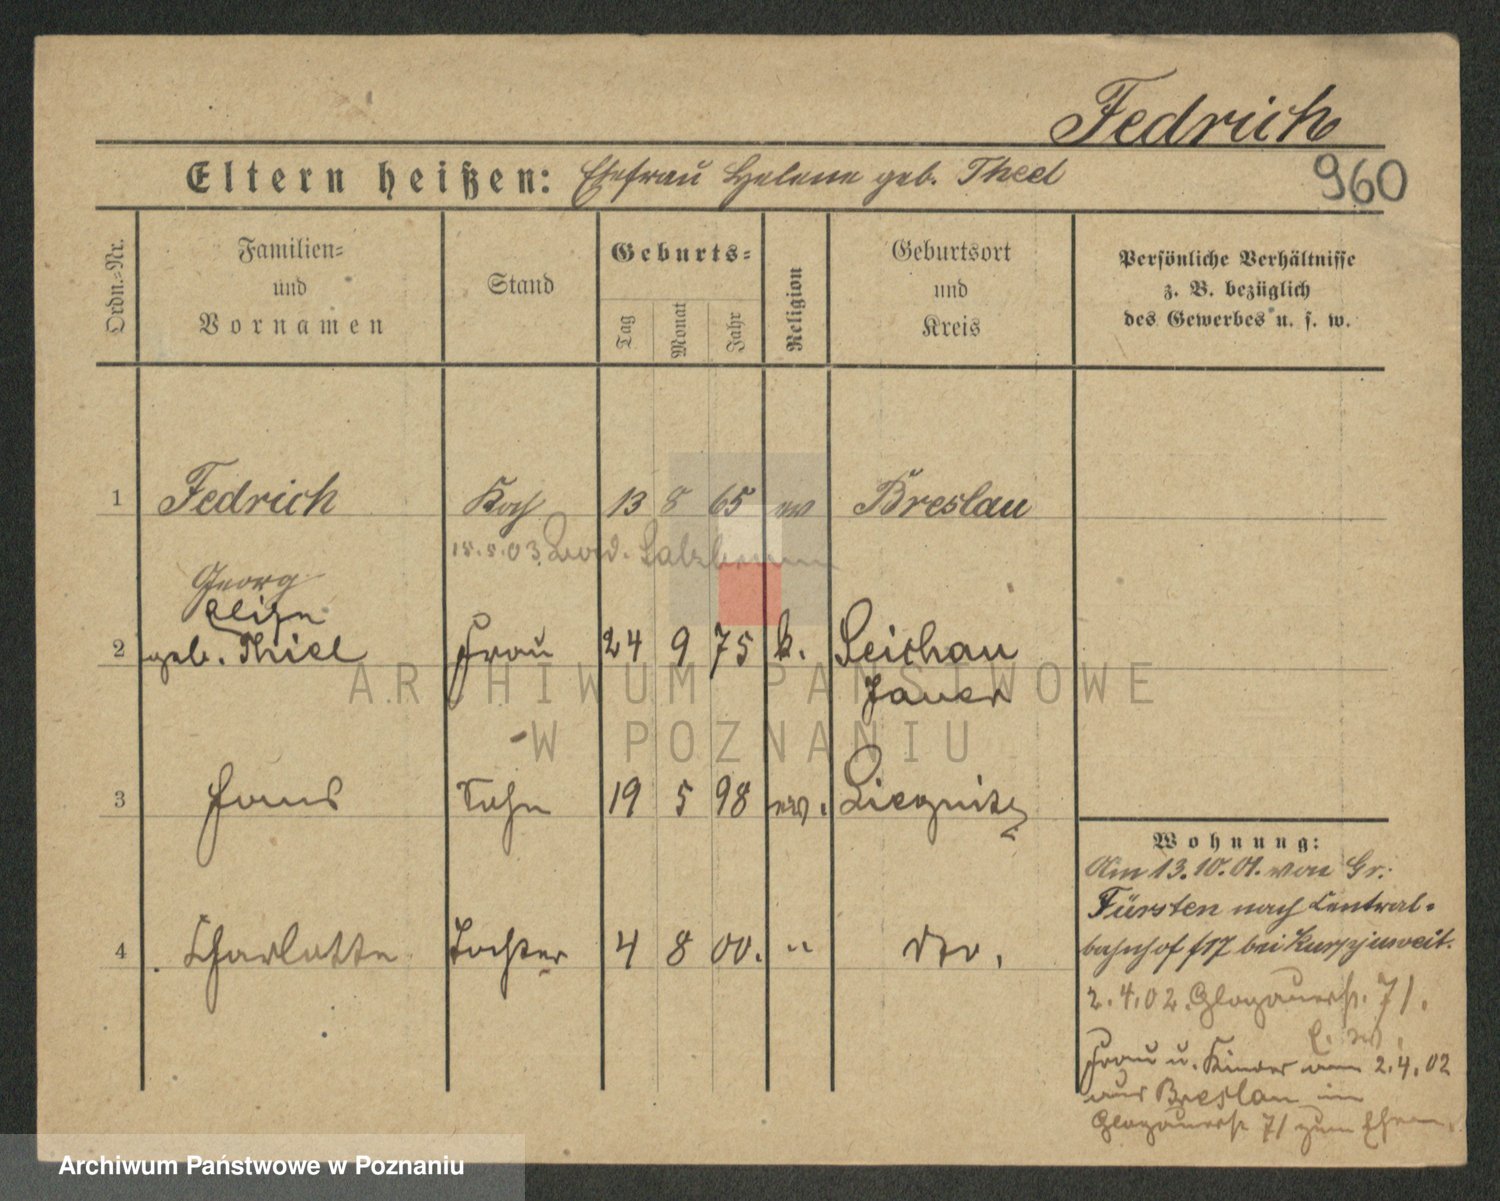 Fedrich
Eltern heißen: Ehefrau Helene geb. Theel
960
Ordn.-Nr.
Familien-
und
Vornamen
Stand
Geburts-
Tag
Monat
Jahr
Religion
Geburtsort
und
Kreis
Persönliche Verhältnisse
z. B. bezüglich
des Gewerbes u. s. w.
1 Fedrich Koch 13 8 65 ev Breslau
15.5.03 Salzbrunn
Georg
2 geb. Thiel Frau 24 9 75 k. Leichau
Jauer
3 Hans Sohn 19 5 98 ev. Liegnitz
4 Charlotte Tochter 4 8 00. " Dto.
Wohnung:
Am 13.10.01. von Gr.
Fürsten nach Central-
bahnhof bei
2.4.02. Glogauerstr. 71.
Frau u. Kinder am 2.4.02
aus Breslau in
Glogauerstr 71 zum Ehem.
ARCHIWUM PAŃSTWOWE
W POZNANIU
Archiwum Państwowe w Poznaniu